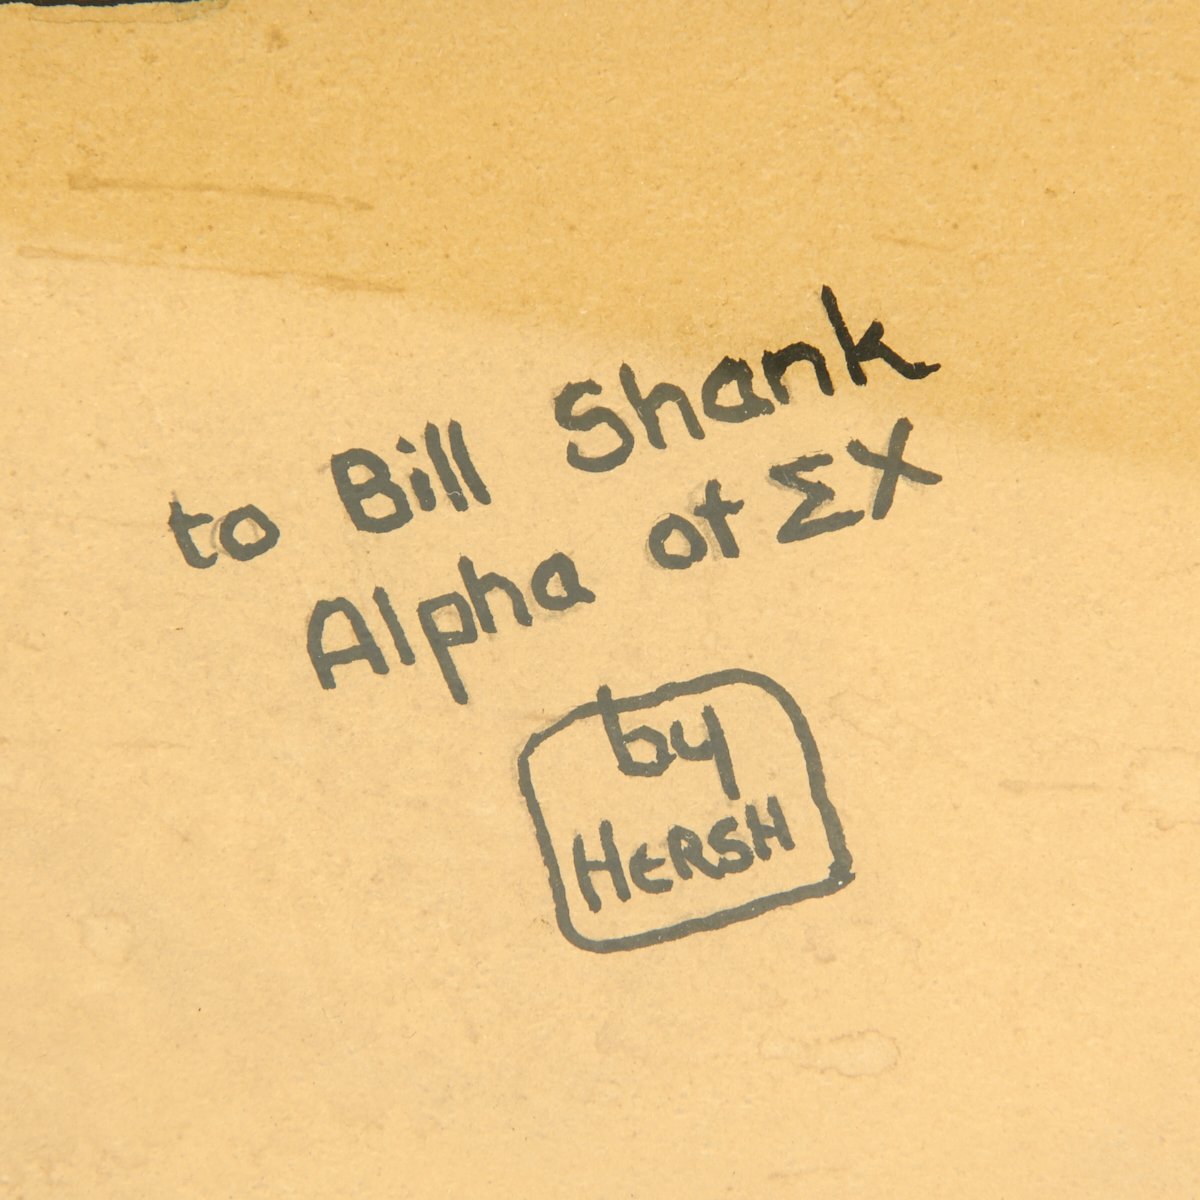 to Bill Shank
Alpha of ΣX
by
HERSH